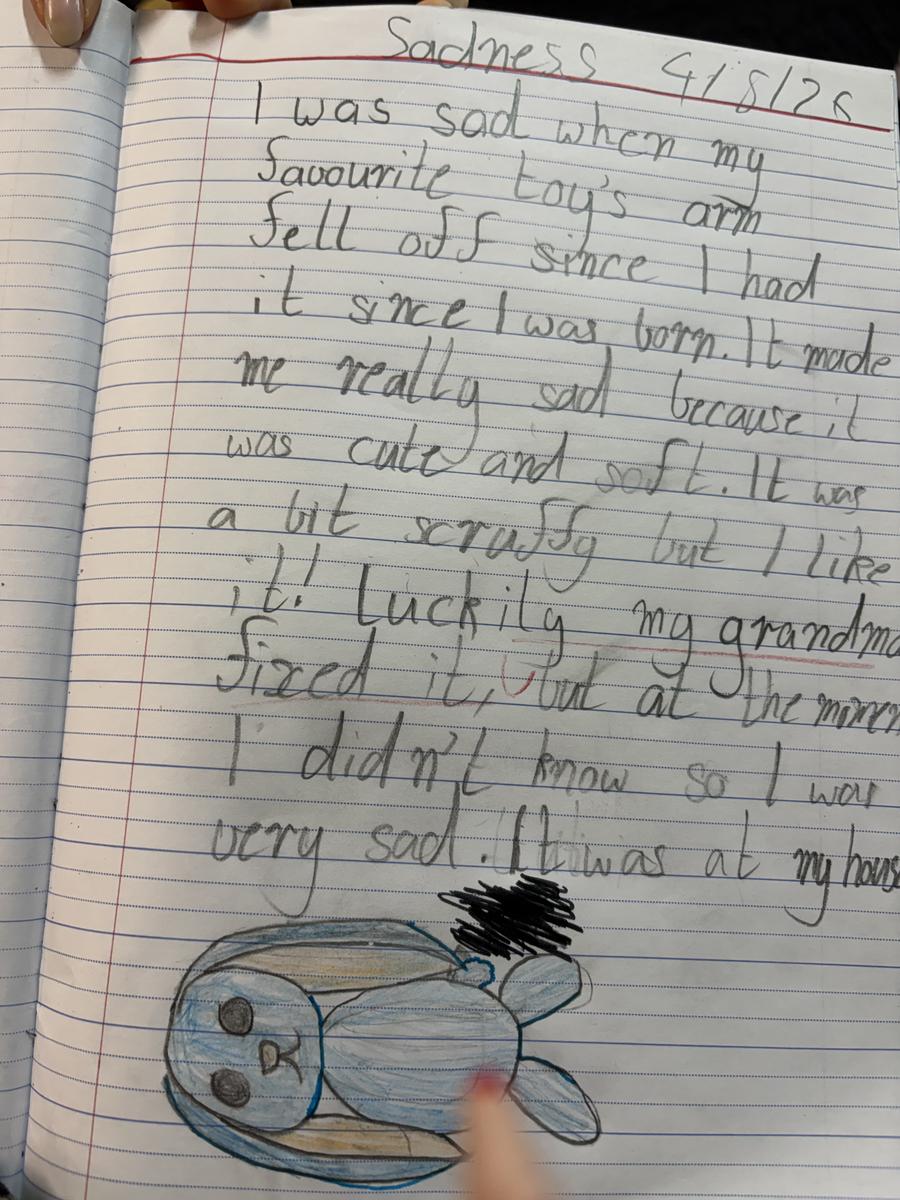 Sadness 4/8/26
I was sad when my
favourite toy's arm
fell off since I had
it since I was born. It made
me really sad because it
was cute and soft. It was
a bit scruffy but I like
it! Luckily my grandma
fixed it, but at the momen
I didn't know so I was
very sad. It was at my hous